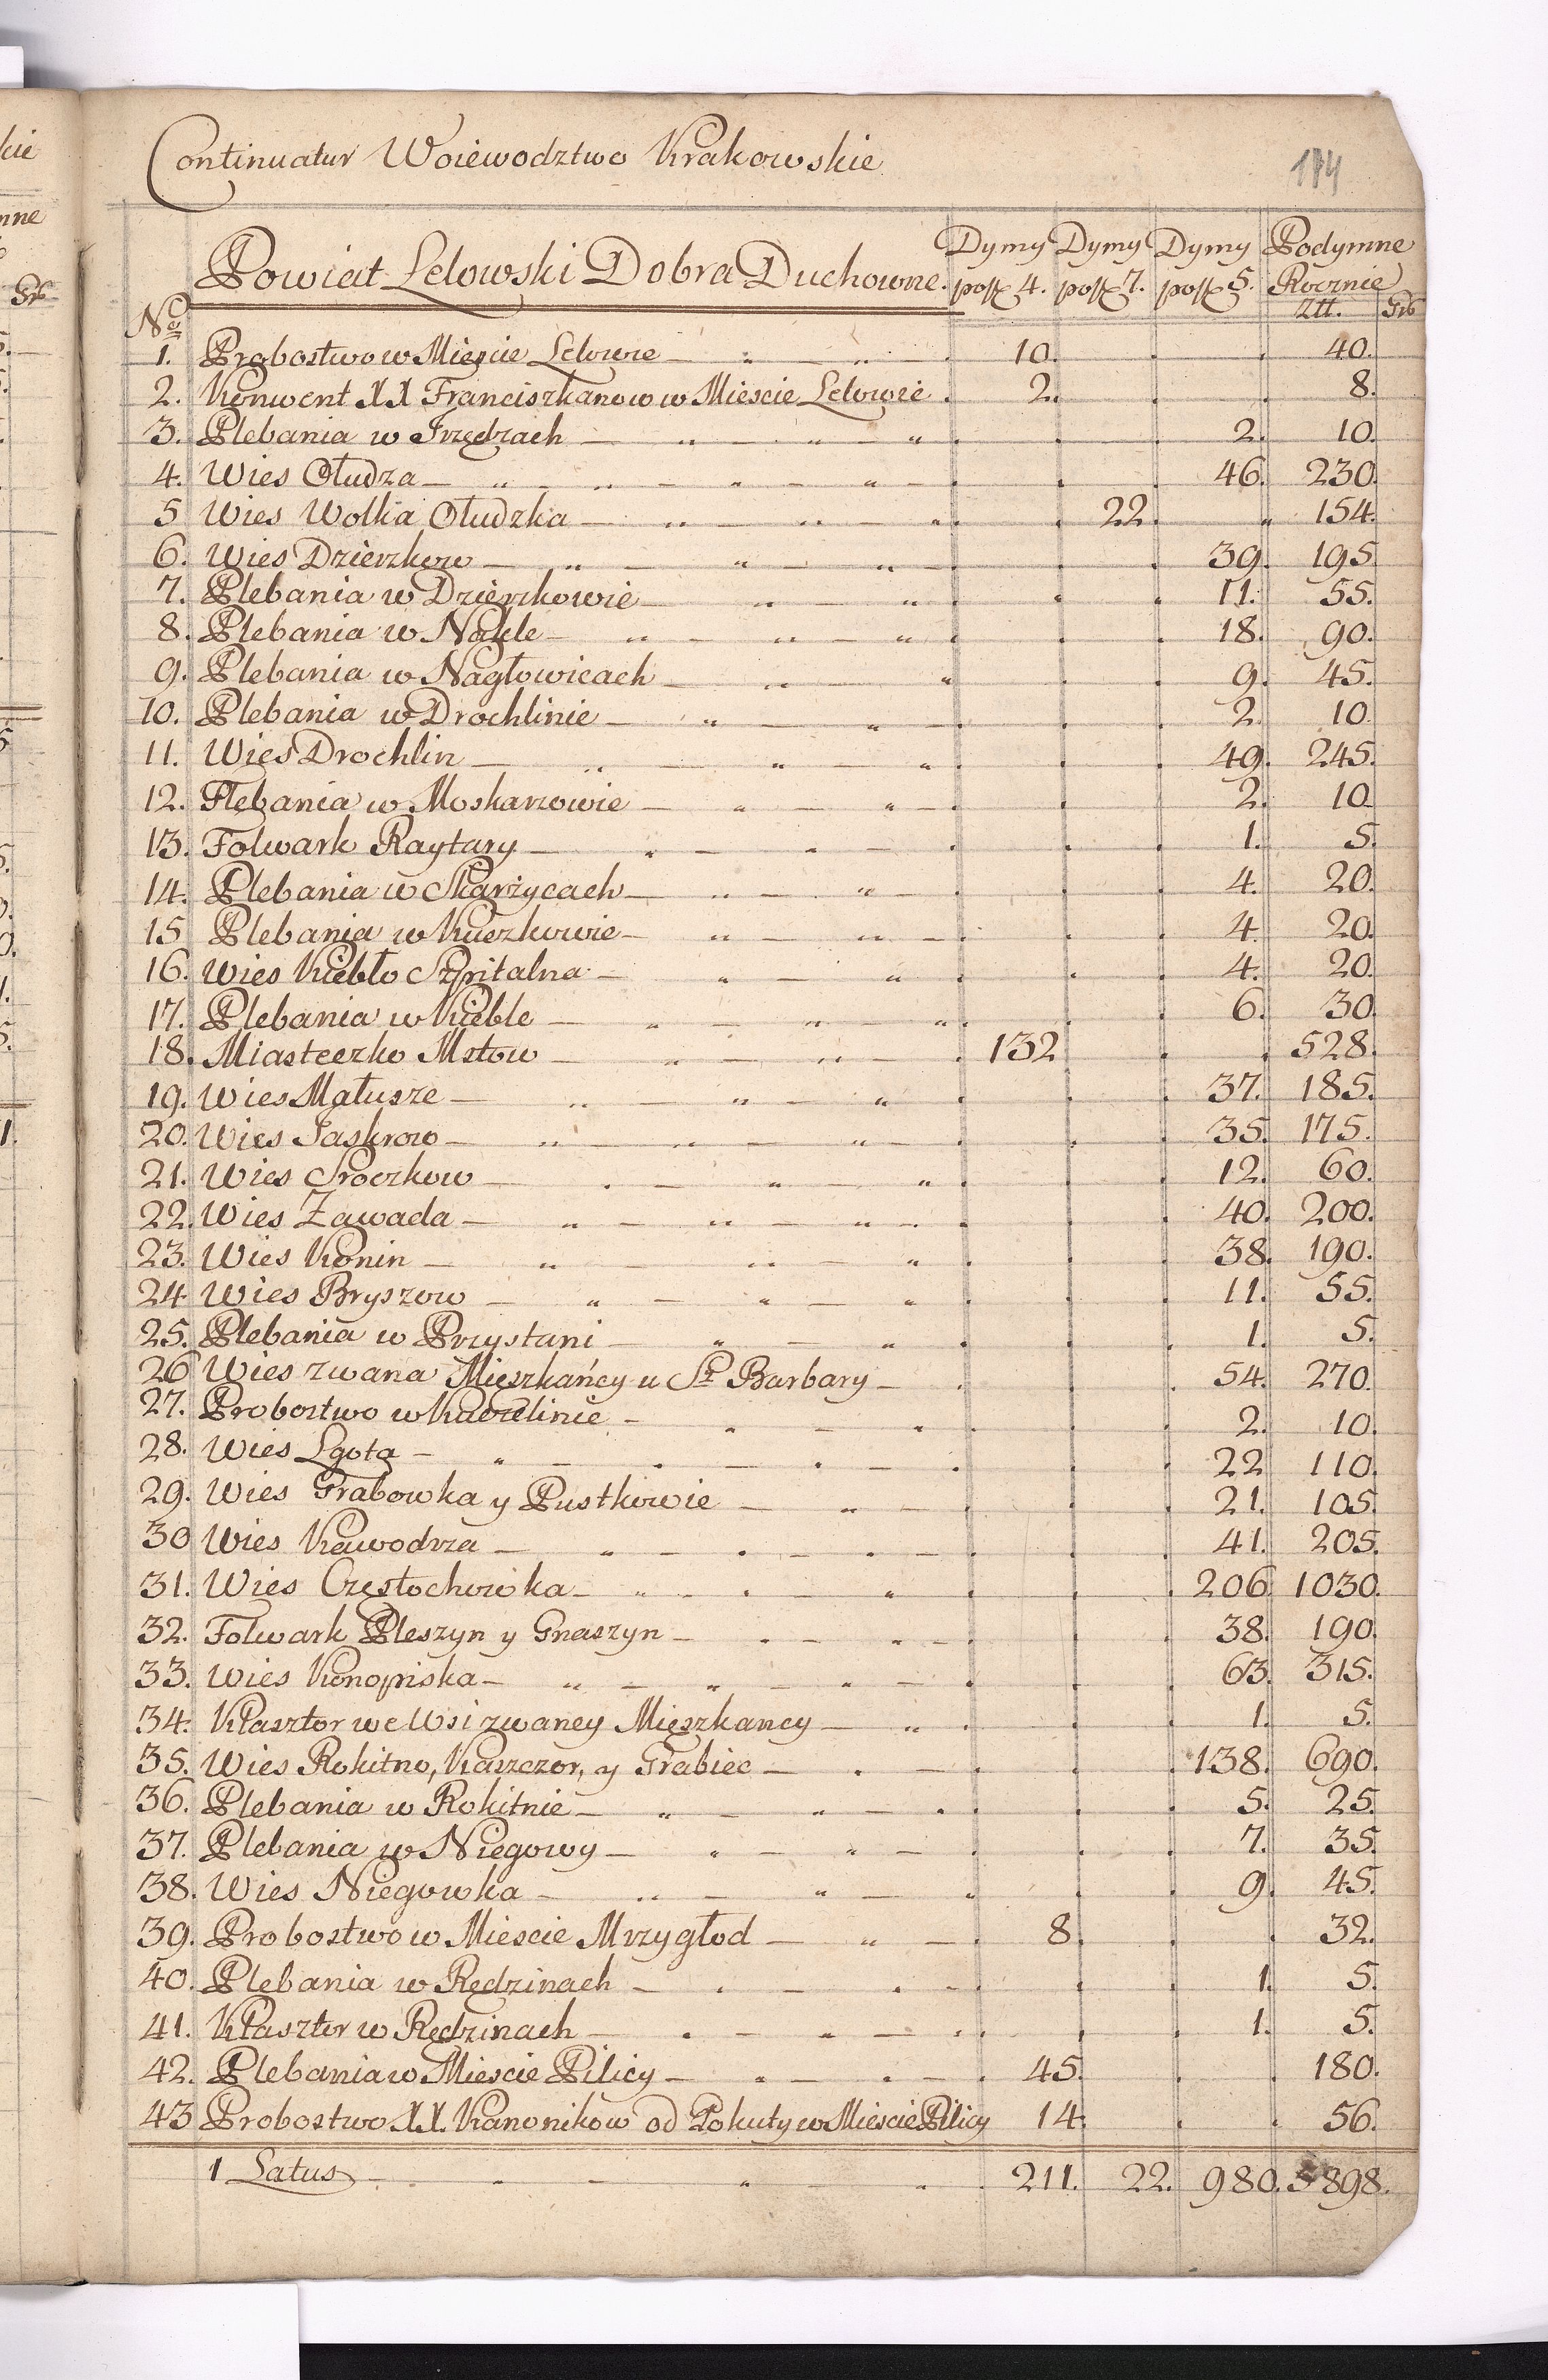 Continuatur Woiewodztwo Krakowskie
Powiat Lelowski Dobra Duchowne. Dymy po zł 4. Dymy po zł 7. Dymy po zł 5. Podymne Rocznie
No złł. Gr
1. Probostwo w Mieście Lelowie 10. 40.
2. Konwent XX Franciszkanow w Miescie Lelowie 2. 8.
3. Plebania w Irządzach 2. 10.
4. Wies Ołudza 46. 230.
5 Wies Wolka Ołudzka 22. 154.
6. Wies Dzierzkow 39. 195
7. Plebania w Dzierzkowie 11. 55.
8. Plebania w Nakle 18. 90.
9. Plebania w Nagłowicach 9. 45.
10. Plebania w Drochlinie 2. 10.
11. Wies Drochlin 49. 245.
12. Plebania w Moskarzowie 2. 10
13. Folwark Raytary 1. 5.
14. Plebania w Skarżycach 4. 20.
15 Plebania w Kuczkowie 4. 20.
16. Wies Kiebło Szpitalna 4. 20.
17. Plebania w Kieble 6. 30.
18. Miasteczko Mstow 132 528.
19. Wies Małusze 37. 185.
20. Wies Jaskrow 35. 175.
21. Wies Sroczkow 12. 60.
22. Wies Zawada 40. 200.
23. Wies Konin 38. 190.
24 Wies Bryszow 11. 55.
25. Plebania w Przystani 1. 5.
26 Wies zwana Mieszkańcy u St Barbary 54. 270.
27. Probostwo w 2. 10.
28. Wies Lgota 22 110.
29. Wies Grabowka y Pustkowie 21. 105.
30 Wies Kawodrza 41. 205.
31. Wies Częstochowka 206 1030.
32. Folwark Pleszyn y Gnaszyn 38. 190.
33. Wies Konopiska 63. 315.
34. Klasztor we Wsi zwaney Mieszkancy 1. 5.
35. Wies Rokitno, Kaszczor, y Grabiec 138. 690.
36. Plebania w Rokitnie 5. 25.
37. Plebania w Niegowy 7. 35.
38. Wies Niegowka 9. 45.
39. Probostwo w Miescie Mrzygłod 8. 32.
40. Plebania w Rędzinach 1. 5.
41. Klasztor w Rędzinach 1. 5.
42. Plebania w Miescie Pilicy 45. 180.
43 Probostwo XX. Kanonikow od Pokuty w Miescie Pilicy 14. 56.
1 Latus 211. 22. 980. 5898.